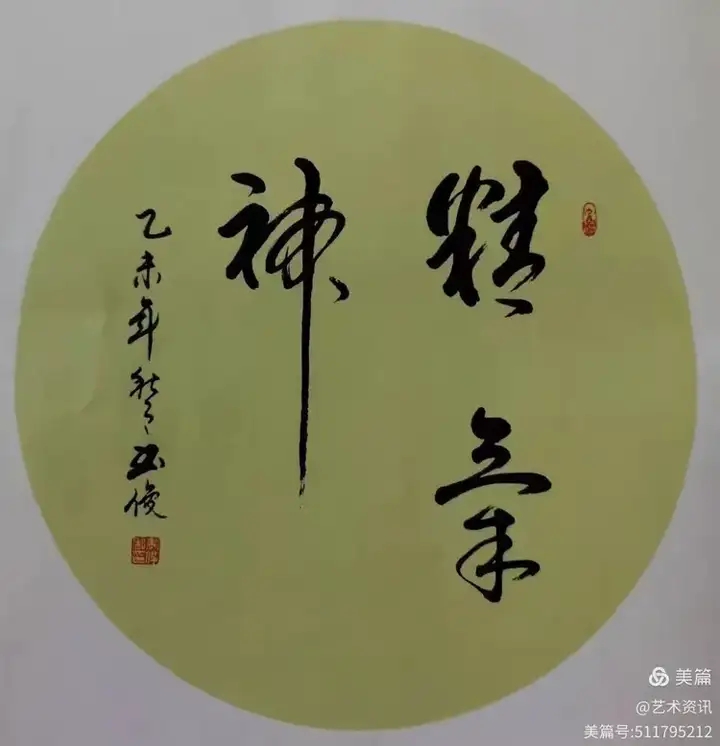 精氣
神
乙未年
俊
美篇
@艺术资讯
美篇号:511795212